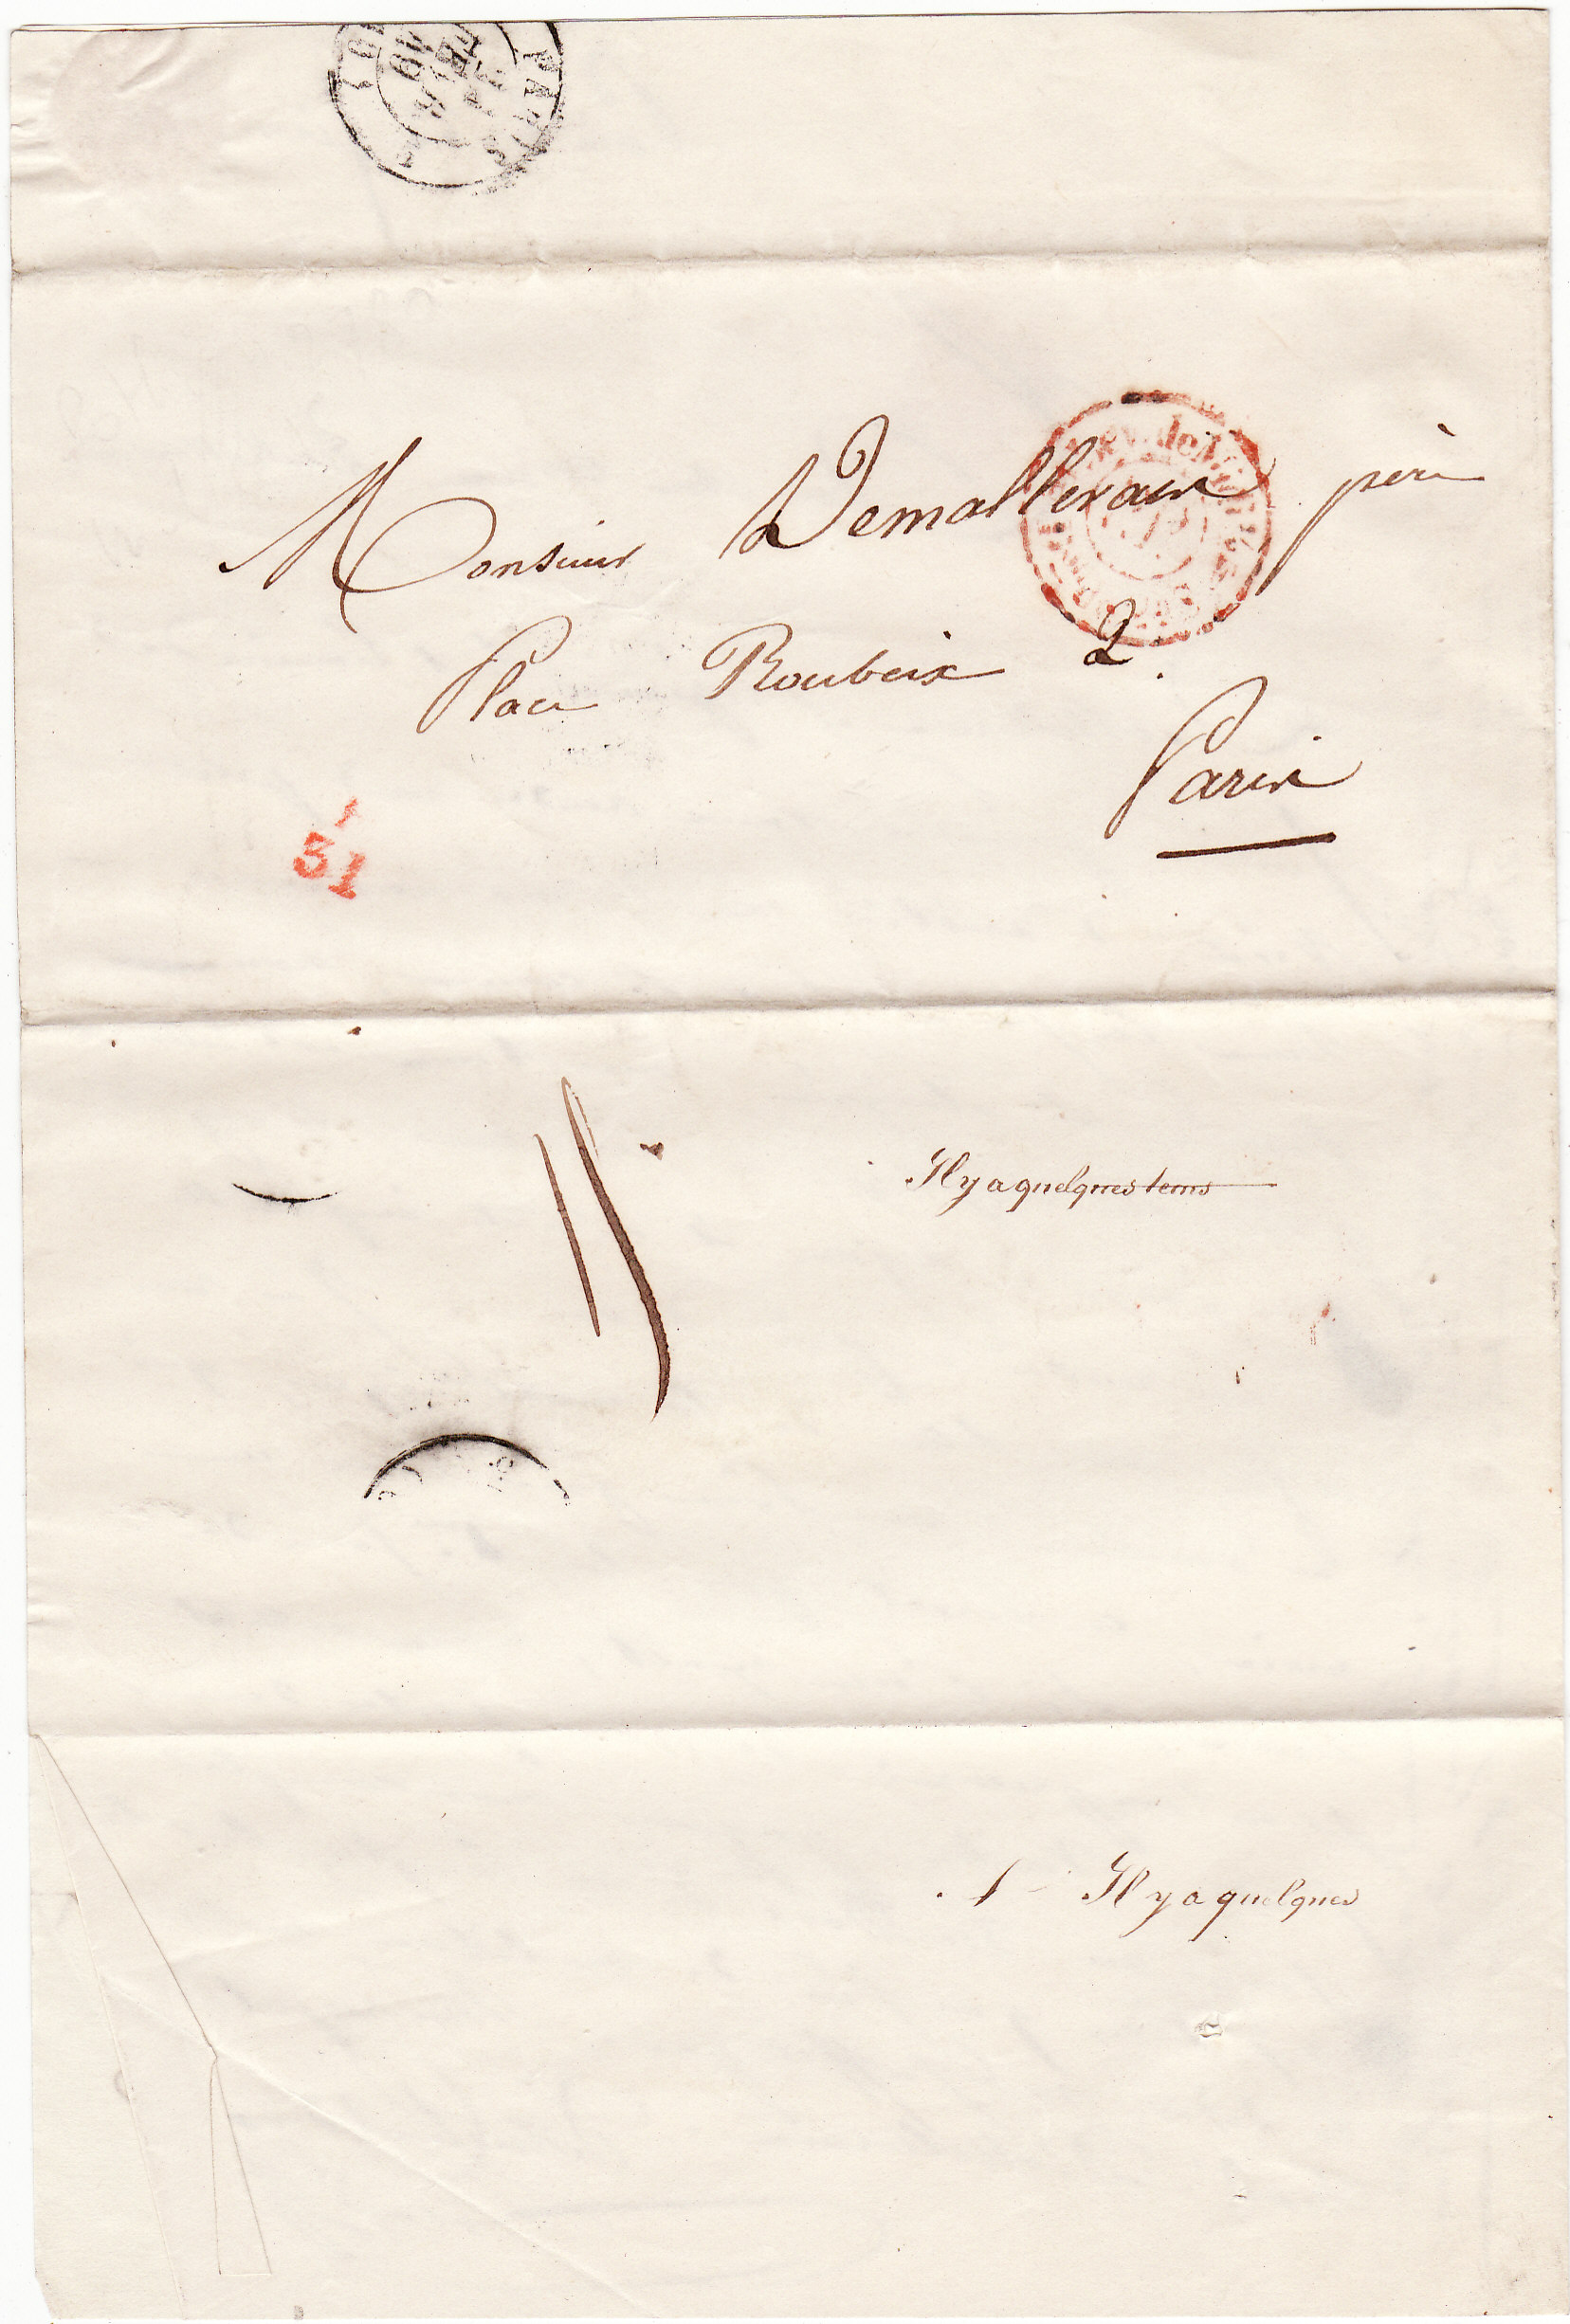 PARIS
Monsieur Demallerais père
Place Roubaix 2.
Paris
1
31
Il y a quelques tems
1 - Il y a quelques